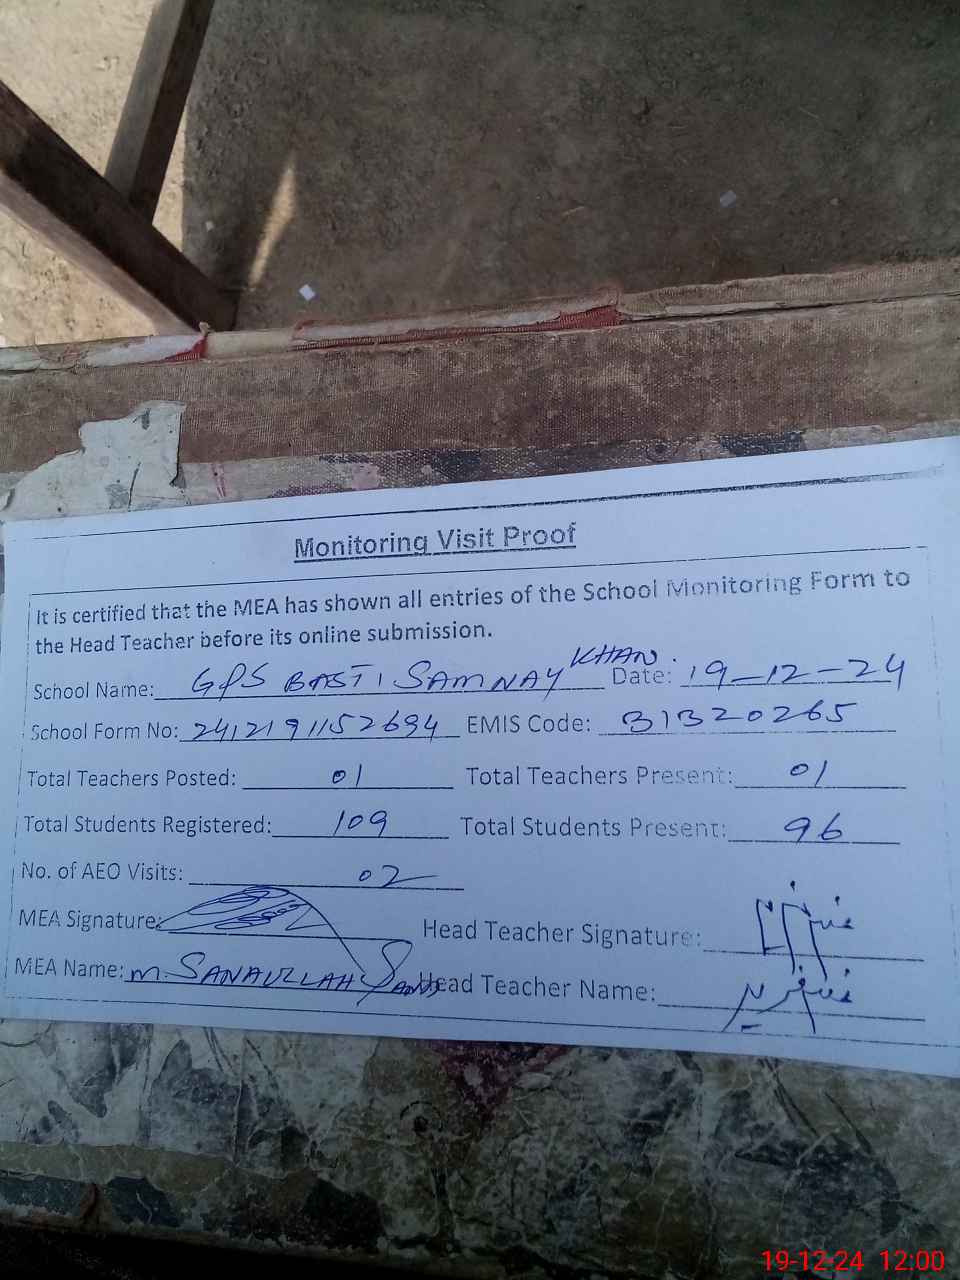 Monitoring Visit Proof
It is certified that the MEA has shown all entries of the School Monitoring Form to
the Head Teacher before its online submission.
School Name: GPS BASTI SAMNAY KHAN Date: 19-12-24
School Form No: 2412191152694 EMIS Code: 31320265
Total Teachers Posted: 01 Total Teachers Present: 01
Total Students Registered: 109 Total Students Present: 96
No. of AEO Visits: 02
MEA Signature: Head Teacher Signature:
MEA Name: M. SANAULLAH Head Teacher Name:
19-12-24 12:00